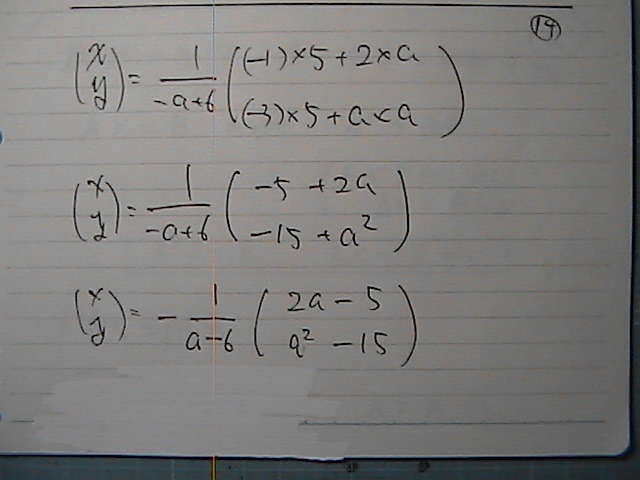 ⑭
(x y) = 1/(-a+6) ((-1)×5+2×a (-3)×5+a×a)
(x y) = 1/(-a+6) (-5+2a -15+a²)
(x y) = -1/(a-6) (2a-5 a²-15)